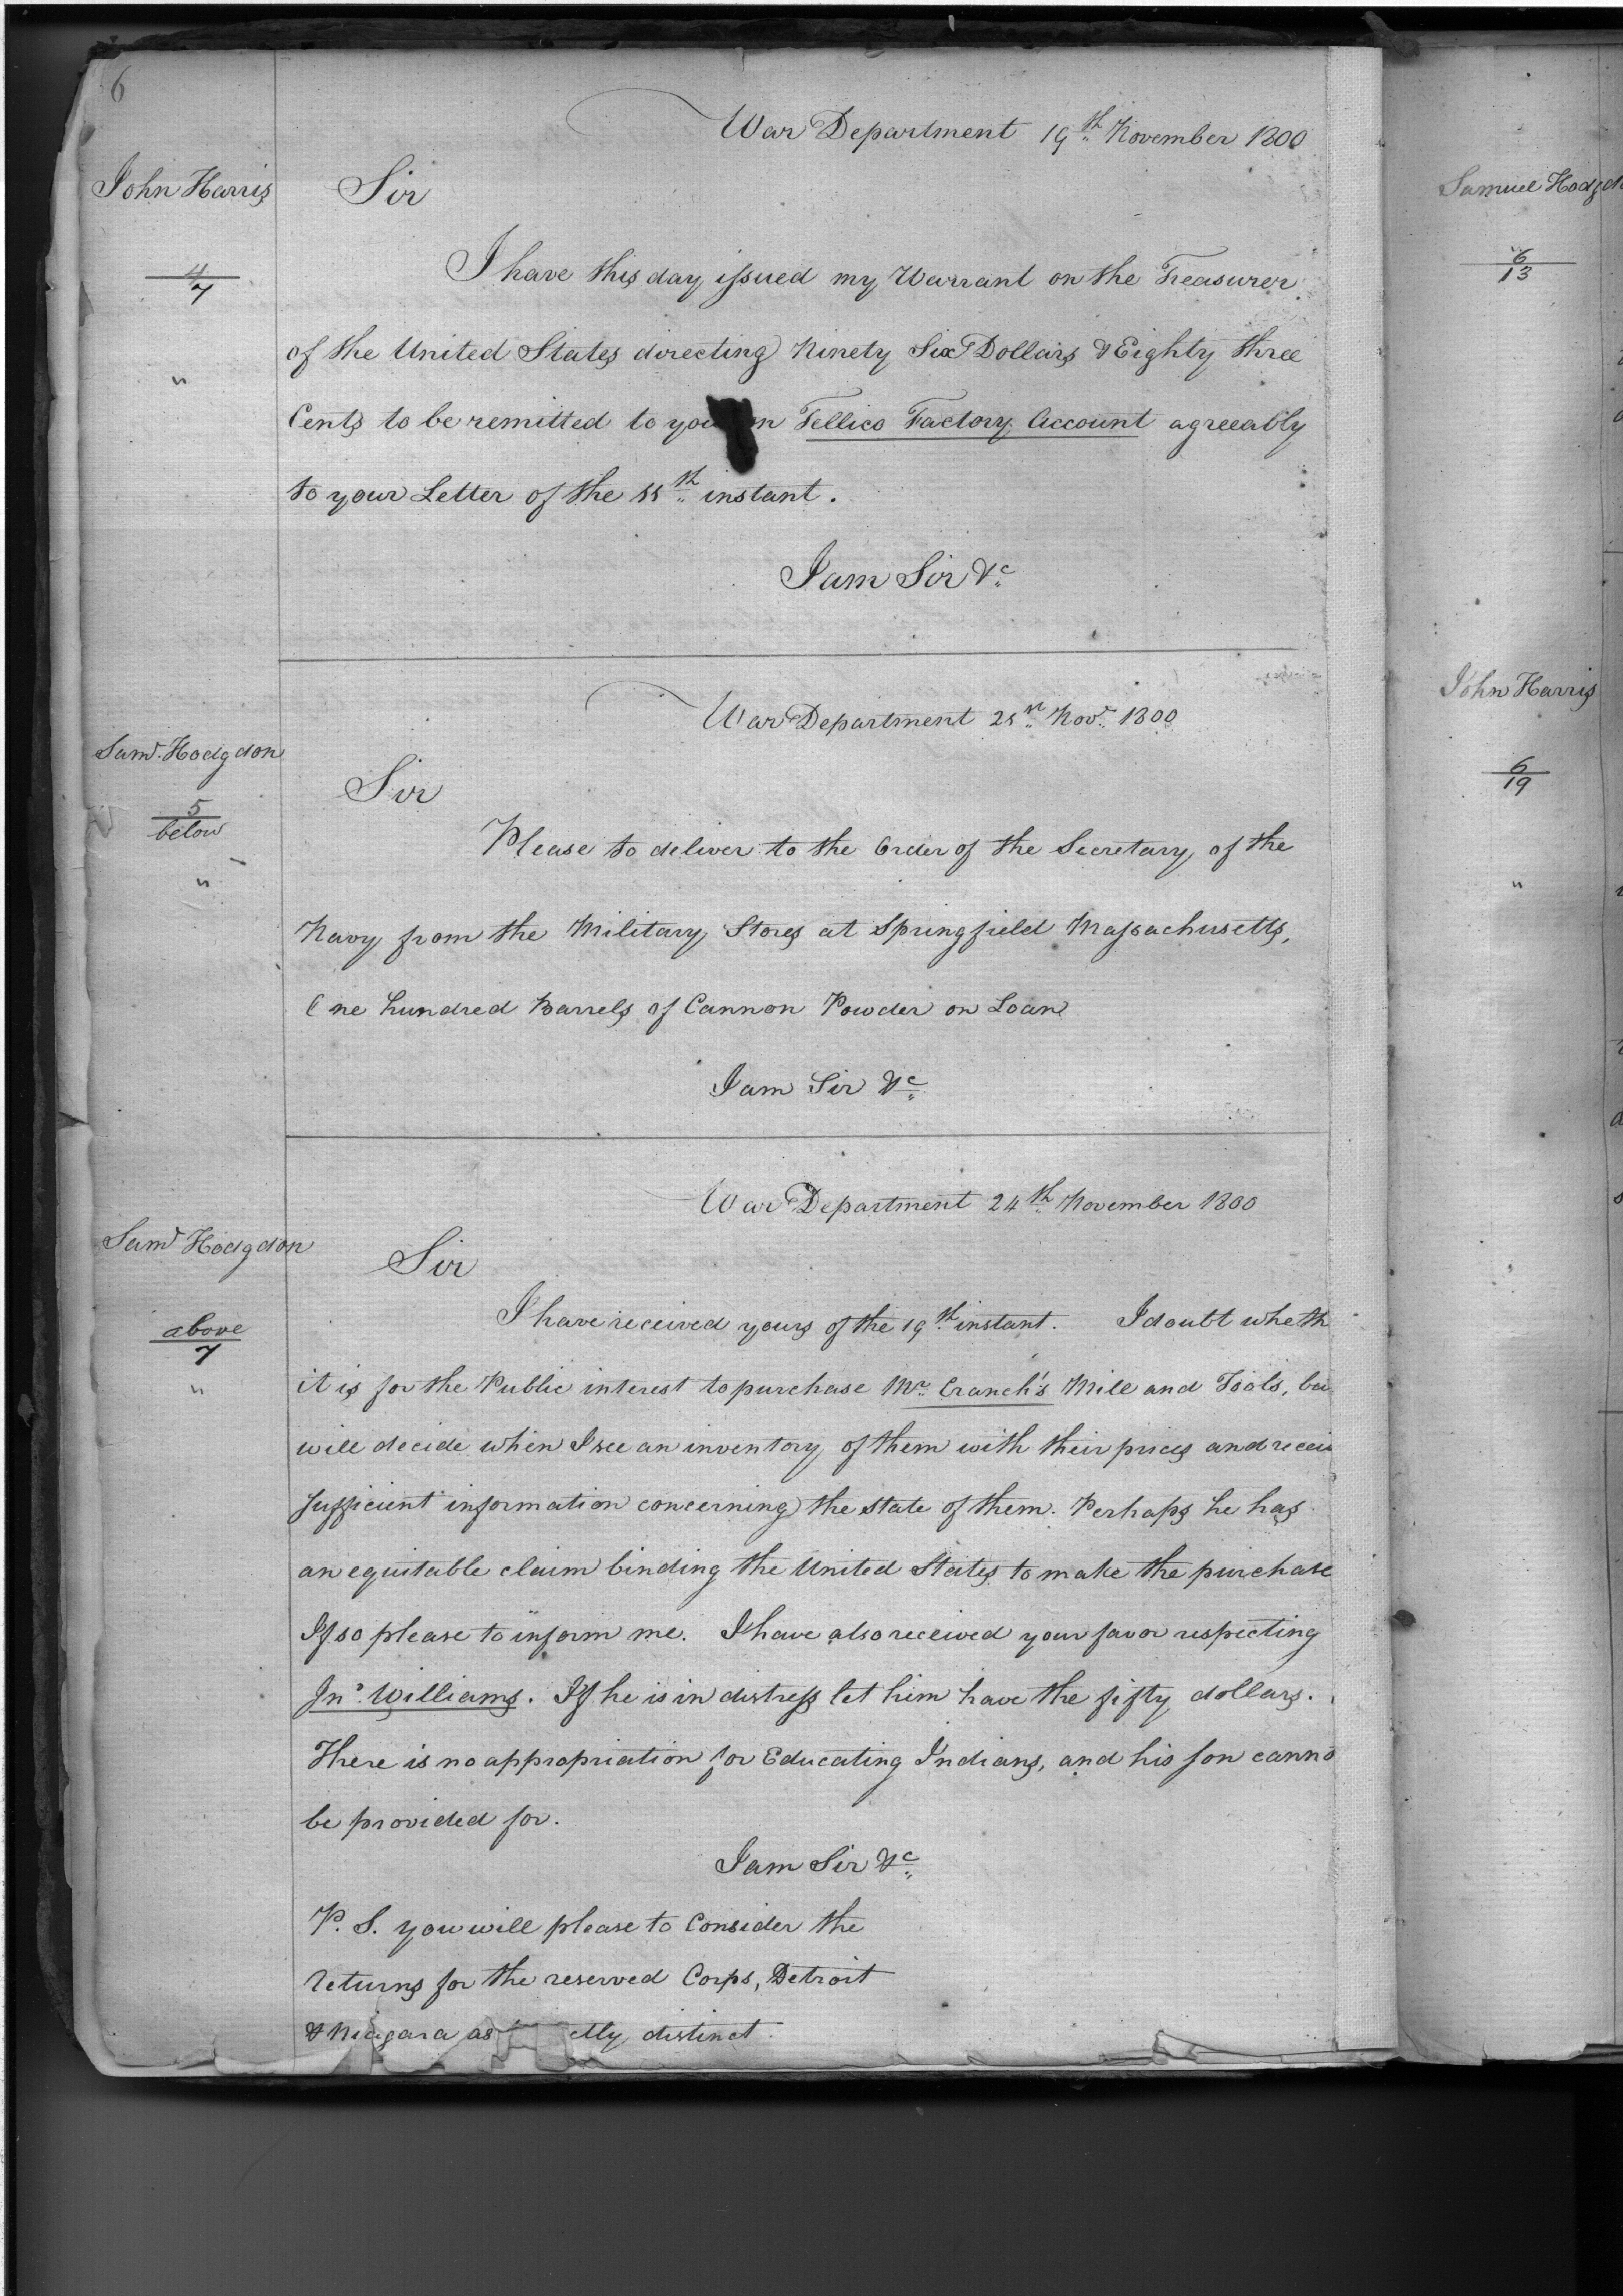 6
War Department 19th November 1800
John Harris
Sir
4
7
I have this day issued my Warrant on the Treasurer
of the United States directing Ninety Six Dollars & Eighty three
"
Cents to be remitted to you Tellico Factory Account agreeably
to your Letter of the 11th instant.
I am Sir &c
War Department 21st Novr 1800
Saml. Hodgdon
Sir
5
below
Please to deliver to the Order of the Secretary of the
"
Navy from the Military Stores at Springfield Massachusetts,
One hundred Barrels of Cannon Powder on Loan
I am Sir &c
War Department 24th November 1800
Saml Hodgdon
Sir
above
7
I have received yours of the 19th instant. I doubt wheth
"
it is for the Public interest to purchase Mr. Cranch's Mill and Tools, bu
will decide when I see an inventory of them with their prices and recei
sufficient information concerning the state of them. Perhaps he has
an equitable claim binding the United States to make the purchase
If so please to inform me. I have also received your favor respecting
Jno. Williams. If he is in distress let him have the fifty dollars.
There is no appropriation for Educating Indians, and his son canno
be provided for.
I am Sir &c
P. S. you will please to Consider the
returns for the reserved Corps, Detroit
& Niagara as ctly distinct
Samuel Hodgdo
6
13
John Harris
6
19
"